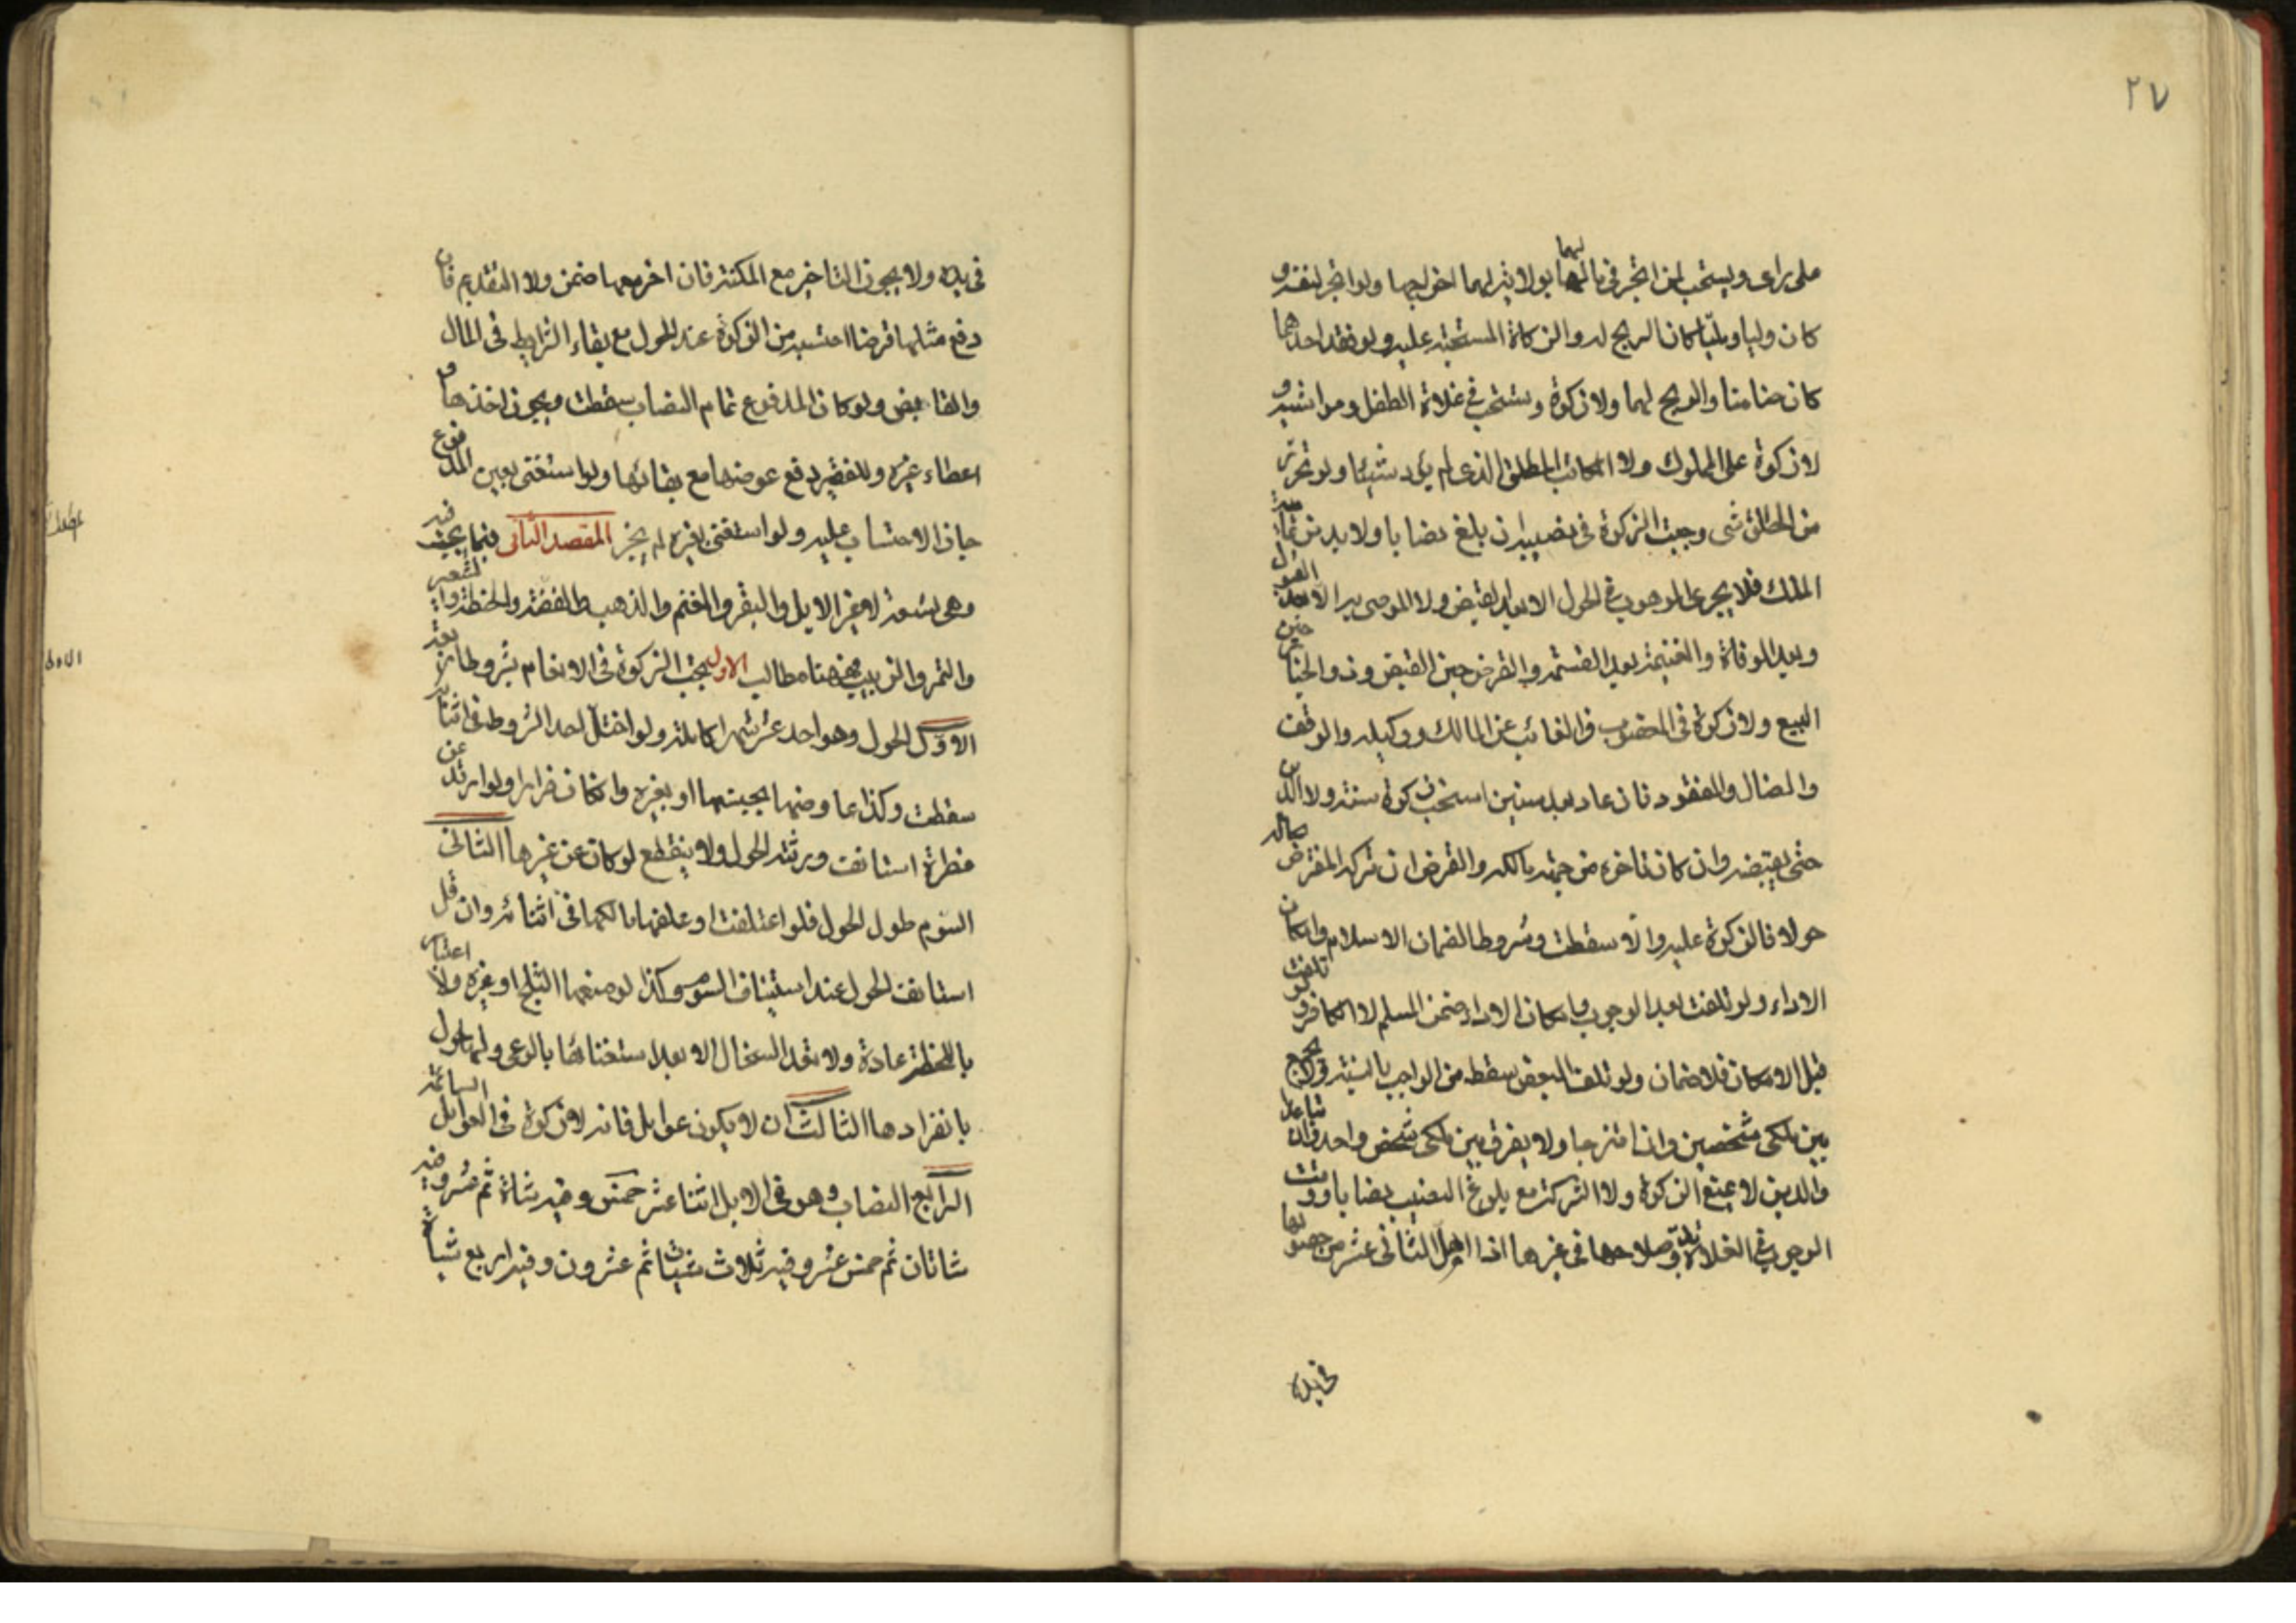 ٢٧
على رأى ويستحب لمن اتجر فى مالهما بولاية لهما اخراجها ولو اتجر لنفسه و
كان وليا وملّيا كان الربح له والزكاة المستحبة عليه ولو فقد احدهما
كان ضامنا والربح لهما ولا زكوة وتستحب فى غلاة الطفل ومواشيه و
لا زكوة على المملوك ولا المكاتب المطلق الذى لم يؤد شيئا ولو تحرّر
من المطلق شى وجبت الزكوة فى نصيبه ان بلغ نصابا ولا بد من تمامية
الملك فلا يجرى الموهوب فى الحول الا بعد القبض ولا الموصى به الا بعد القبول
وبعد الوفاة والغنيمة بعد القسمة والقرض حين القبض وذو الخيار حين
البيع ولا زكوة فى المغصوب والغائب عن المالك ووكيله والوقف
والضال والمفقود فان عاد بعد سنين استحب زكوة سنة ولا الدين
حتى يقبضه وان كان تاخره من جهة مالكه والقرض ان تركه المقترض بحاله
حولا فالزكوة عليه والّا سقطت وشروط الضمان الاسلام وامكان
الاداء ولو تلفت بعد الوجوب وامكان الاداء ضمن المسلم لا الكافر ولو تلفت
قبل الامكان فلا ضمان ولو تلف البعض سقط من الواجب بالنسبة ولا يجمع
بين ملكى شخصين وان امتزجا ولا يفرق بين ملكى شخص واحد وان تباعدا
والدين لا يمنع الزكوة ولا الشركة مع بلوغ النصيب نصابا ووقت
الوجوب فى الغلاة بدو صلاحها فى غيرها اذا اهلّ الثانى عشر من حصولها
فى يده
فى يده ولا يجوز التاخير مع المكنة فان اخر معها ضمن ولا التقديم فان
دفع مثلها قرضا احتسبه من الزكوة عند الحول مع بقاء الشرايط فى المال
والقابض ولو كان المدفوع تمام النصاب سقطت ويجوز اخذها و
اعطاء غيره وللفقير دفع عوضها مع بقائها ولو استغنى بعين المدفوع
جاز الاحتساب عليه ولو استغنى بغيره لم يجز المقصد الثانى فيما يجب فيه
وهى تسعة لا غير الابل والبقر والغنم والذهب والفضة والحنطة والشعير
والتمر والزبيب فهنا مطالب الاول تجب الزكوة فى الانعام بشروط اربعة
الاوّل الحول وهو احد عشر شهرا كاملة ولو اختلّ احد الشروط فى اثنائه
سقطت وكذا عاوضها بجنسها او بغيره وان كان فرارا ولو ارتد عن
فطرة استانفت ورثته الحول ولا ينقطع لو كان عن غيرها الثانى
السوم طول الحول فلو اعتلفت او علفها مالكها فى اثنائه وان قل
استانفت الحول عند استيناف السوم وكذا لو منعها الثلج او غيره ولا اعتبار
باللحظة عادة ولا تعد السخال الا بعد استغنائها بالرعى ولها حول
بانفرادها الثالث ان لا يكون عوامل فانه لا زكوة فى العوامل السائمة
الرابع النصاب وهو فى الابل اثنا عشر خمس وفيه شاة ثم عشر وفيه
شاتان ثم خمس عشر وفيه ثلاث شياة ثم عشرون وفيه اربع شياة